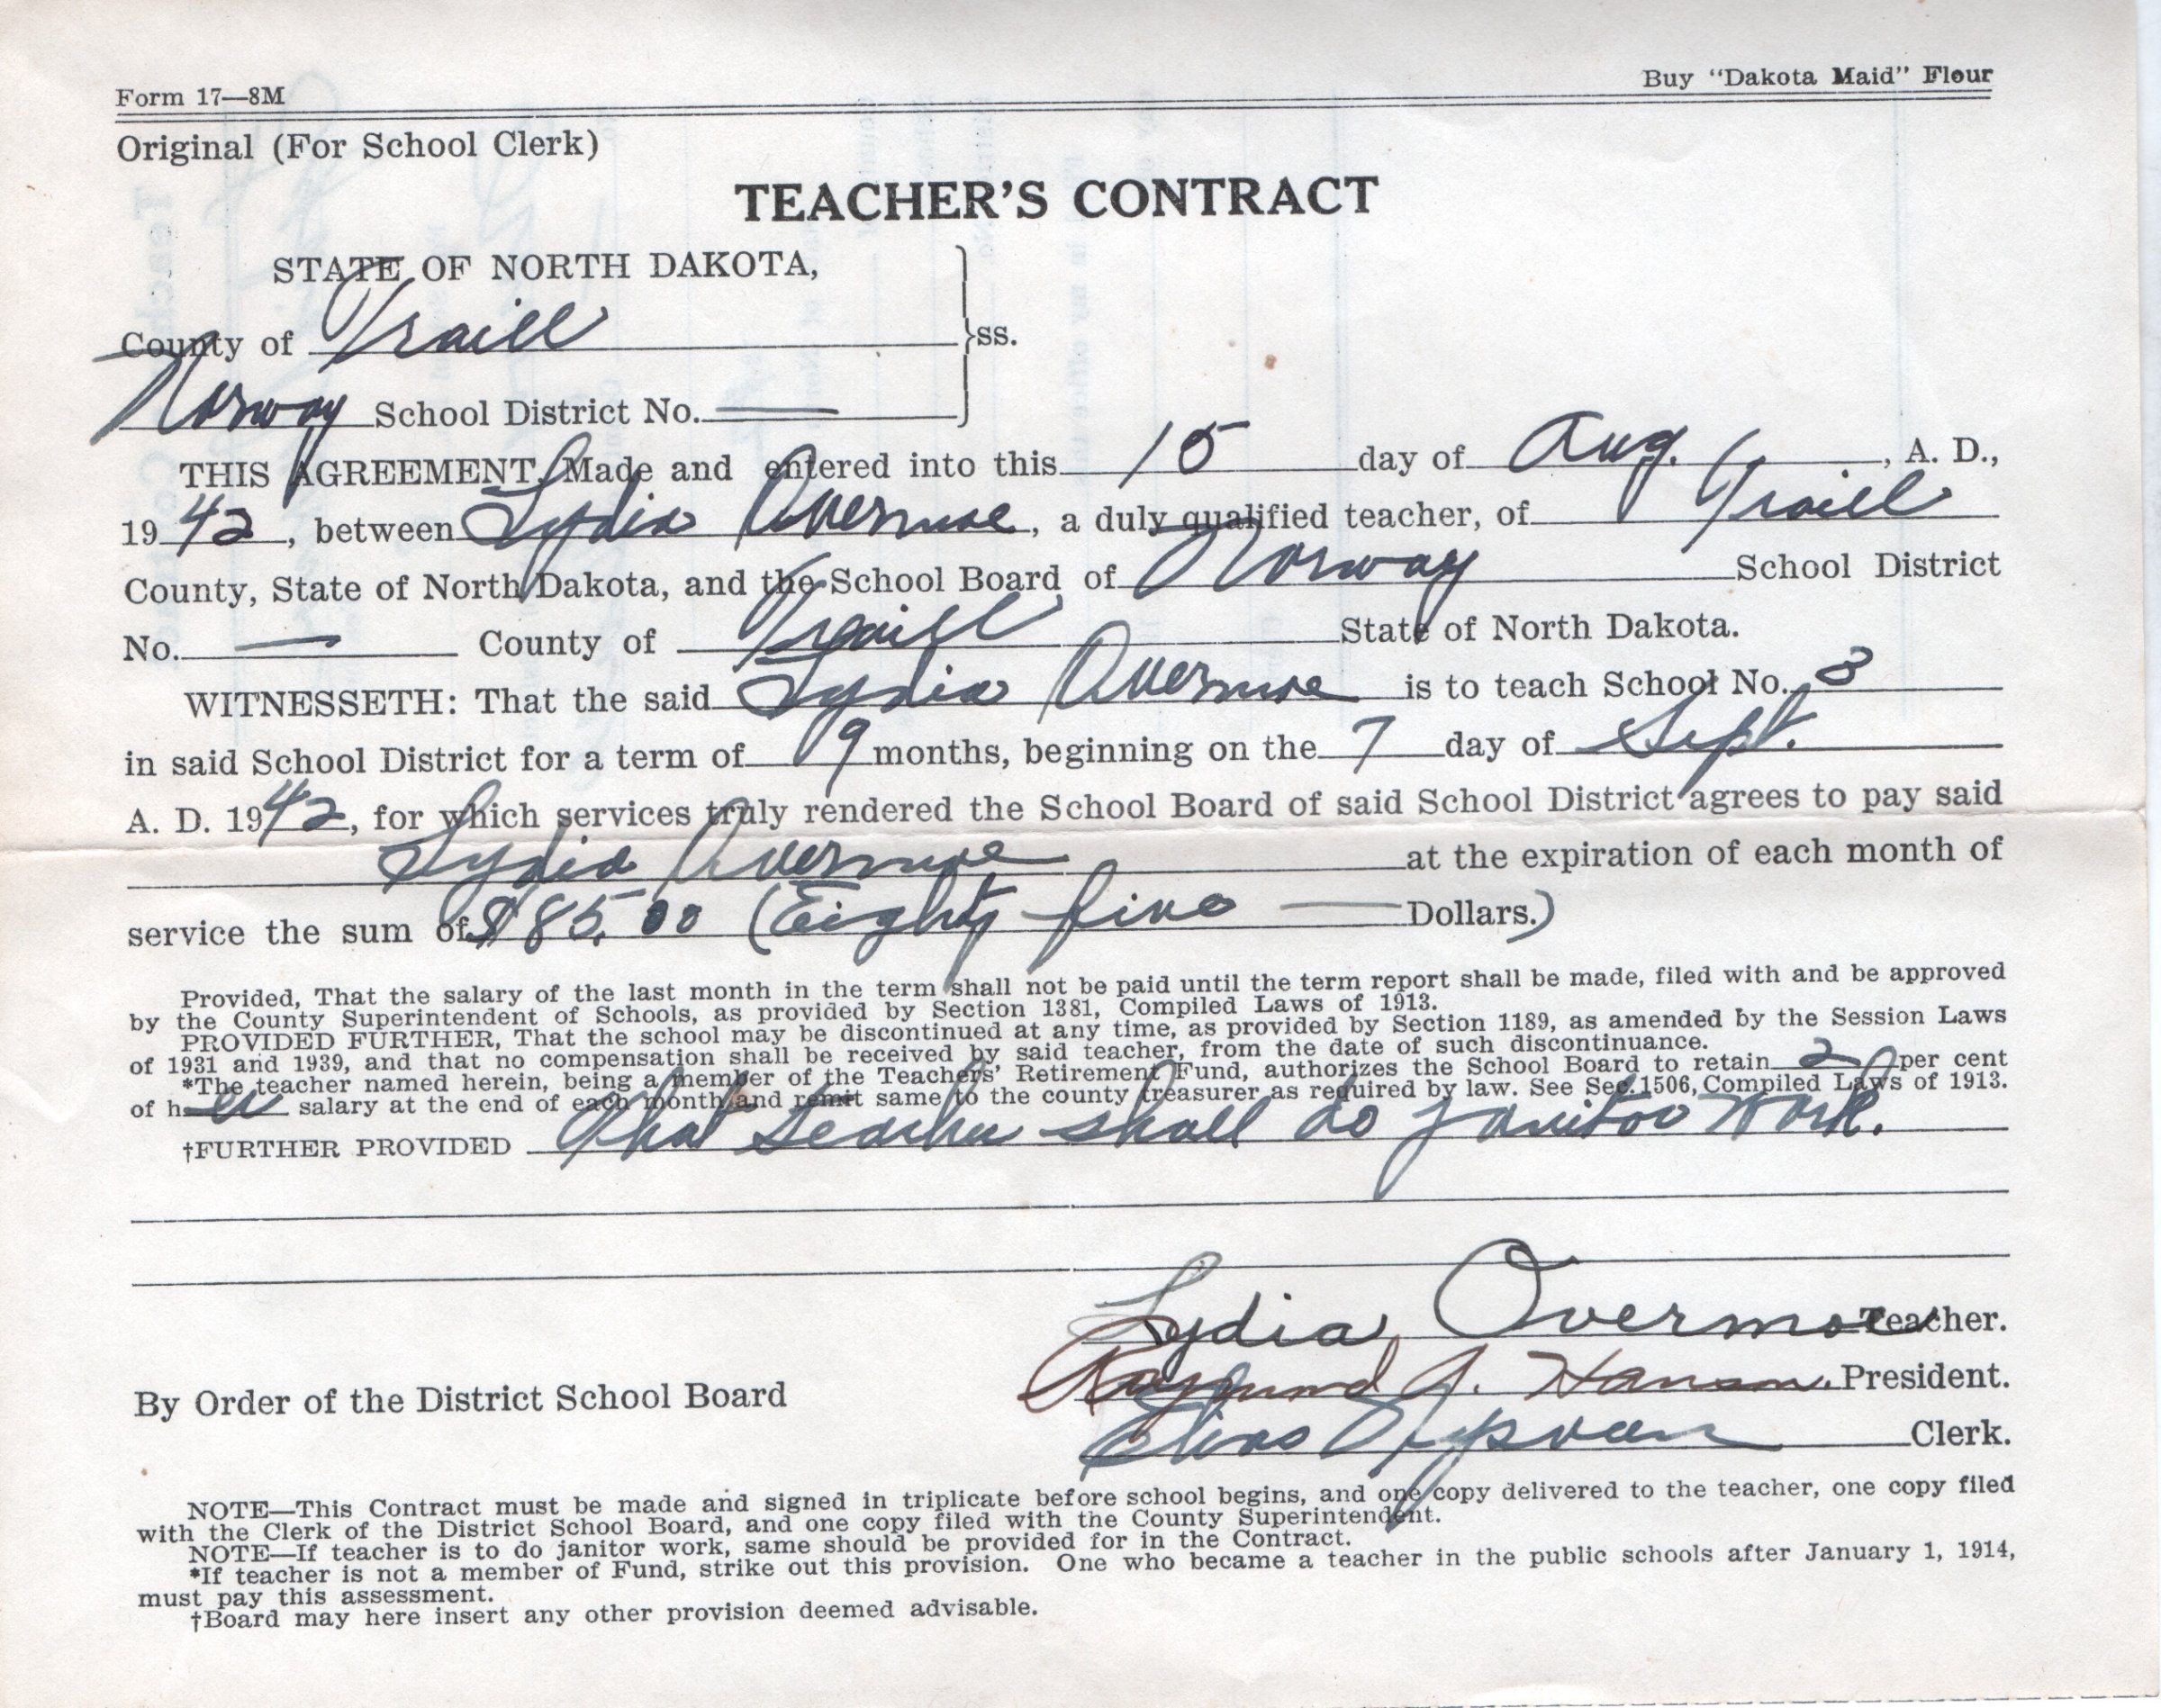 Form 17—8M
Buy "Dakota Maid" Flour
Original (For School Clerk)
TEACHER'S CONTRACT
STATE OF NORTH DAKOTA,
County of Traill
}ss.
Norway School District No. —
THIS AGREEMENT, Made and entered into this 15 day of Aug., A. D.,
1942, between Lydia Overmoe, a duly qualified teacher, of Traill
County, State of North Dakota, and the School Board of Norway School District
No. — County of Traill State of North Dakota.
WITNESSETH: That the said Lydia Overmoe is to teach School No. 3
in said School District for a term of 9 months, beginning on the 7 day of Sept.
A. D. 1942, for which services truly rendered the School Board of said School District agrees to pay said
Lydia Overmoe at the expiration of each month of
service the sum of $85.00 (Eighty five — Dollars.)
Provided, That the salary of the last month in the term shall not be paid until the term report shall be made, filed with and be approved
by the County Superintendent of Schools, as provided by Section 1381, Compiled Laws of 1913.
PROVIDED FURTHER, That the school may be discontinued at any time, as provided by Section 1189, as amended by the Session Laws
of 1931 and 1939, and that no compensation shall be received by said teacher, from the date of such discontinuance.
*The teacher named herein, being a member of the Teachers' Retirement Fund, authorizes the School Board to retain 2 per cent
of her salary at the end of each month and remit same to the county treasurer as required by law. See Sec. 1506, Compiled Laws of 1913.
†FURTHER PROVIDED That teacher shall do janitor work.
Lydia Overmoe Teacher.
Raymond J. Hanson. President.
By Order of the District School Board
Elias Clerk.
NOTE—This Contract must be made and signed in triplicate before school begins, and one copy delivered to the teacher, one copy filed
with the Clerk of the District School Board, and one copy filed with the County Superintendent.
NOTE—If teacher is to do janitor work, same should be provided for in the Contract.
*If teacher is not a member of Fund, strike out this provision. One who became a teacher in the public schools after January 1, 1914,
must pay this assessment.
†Board may here insert any other provision deemed advisable.